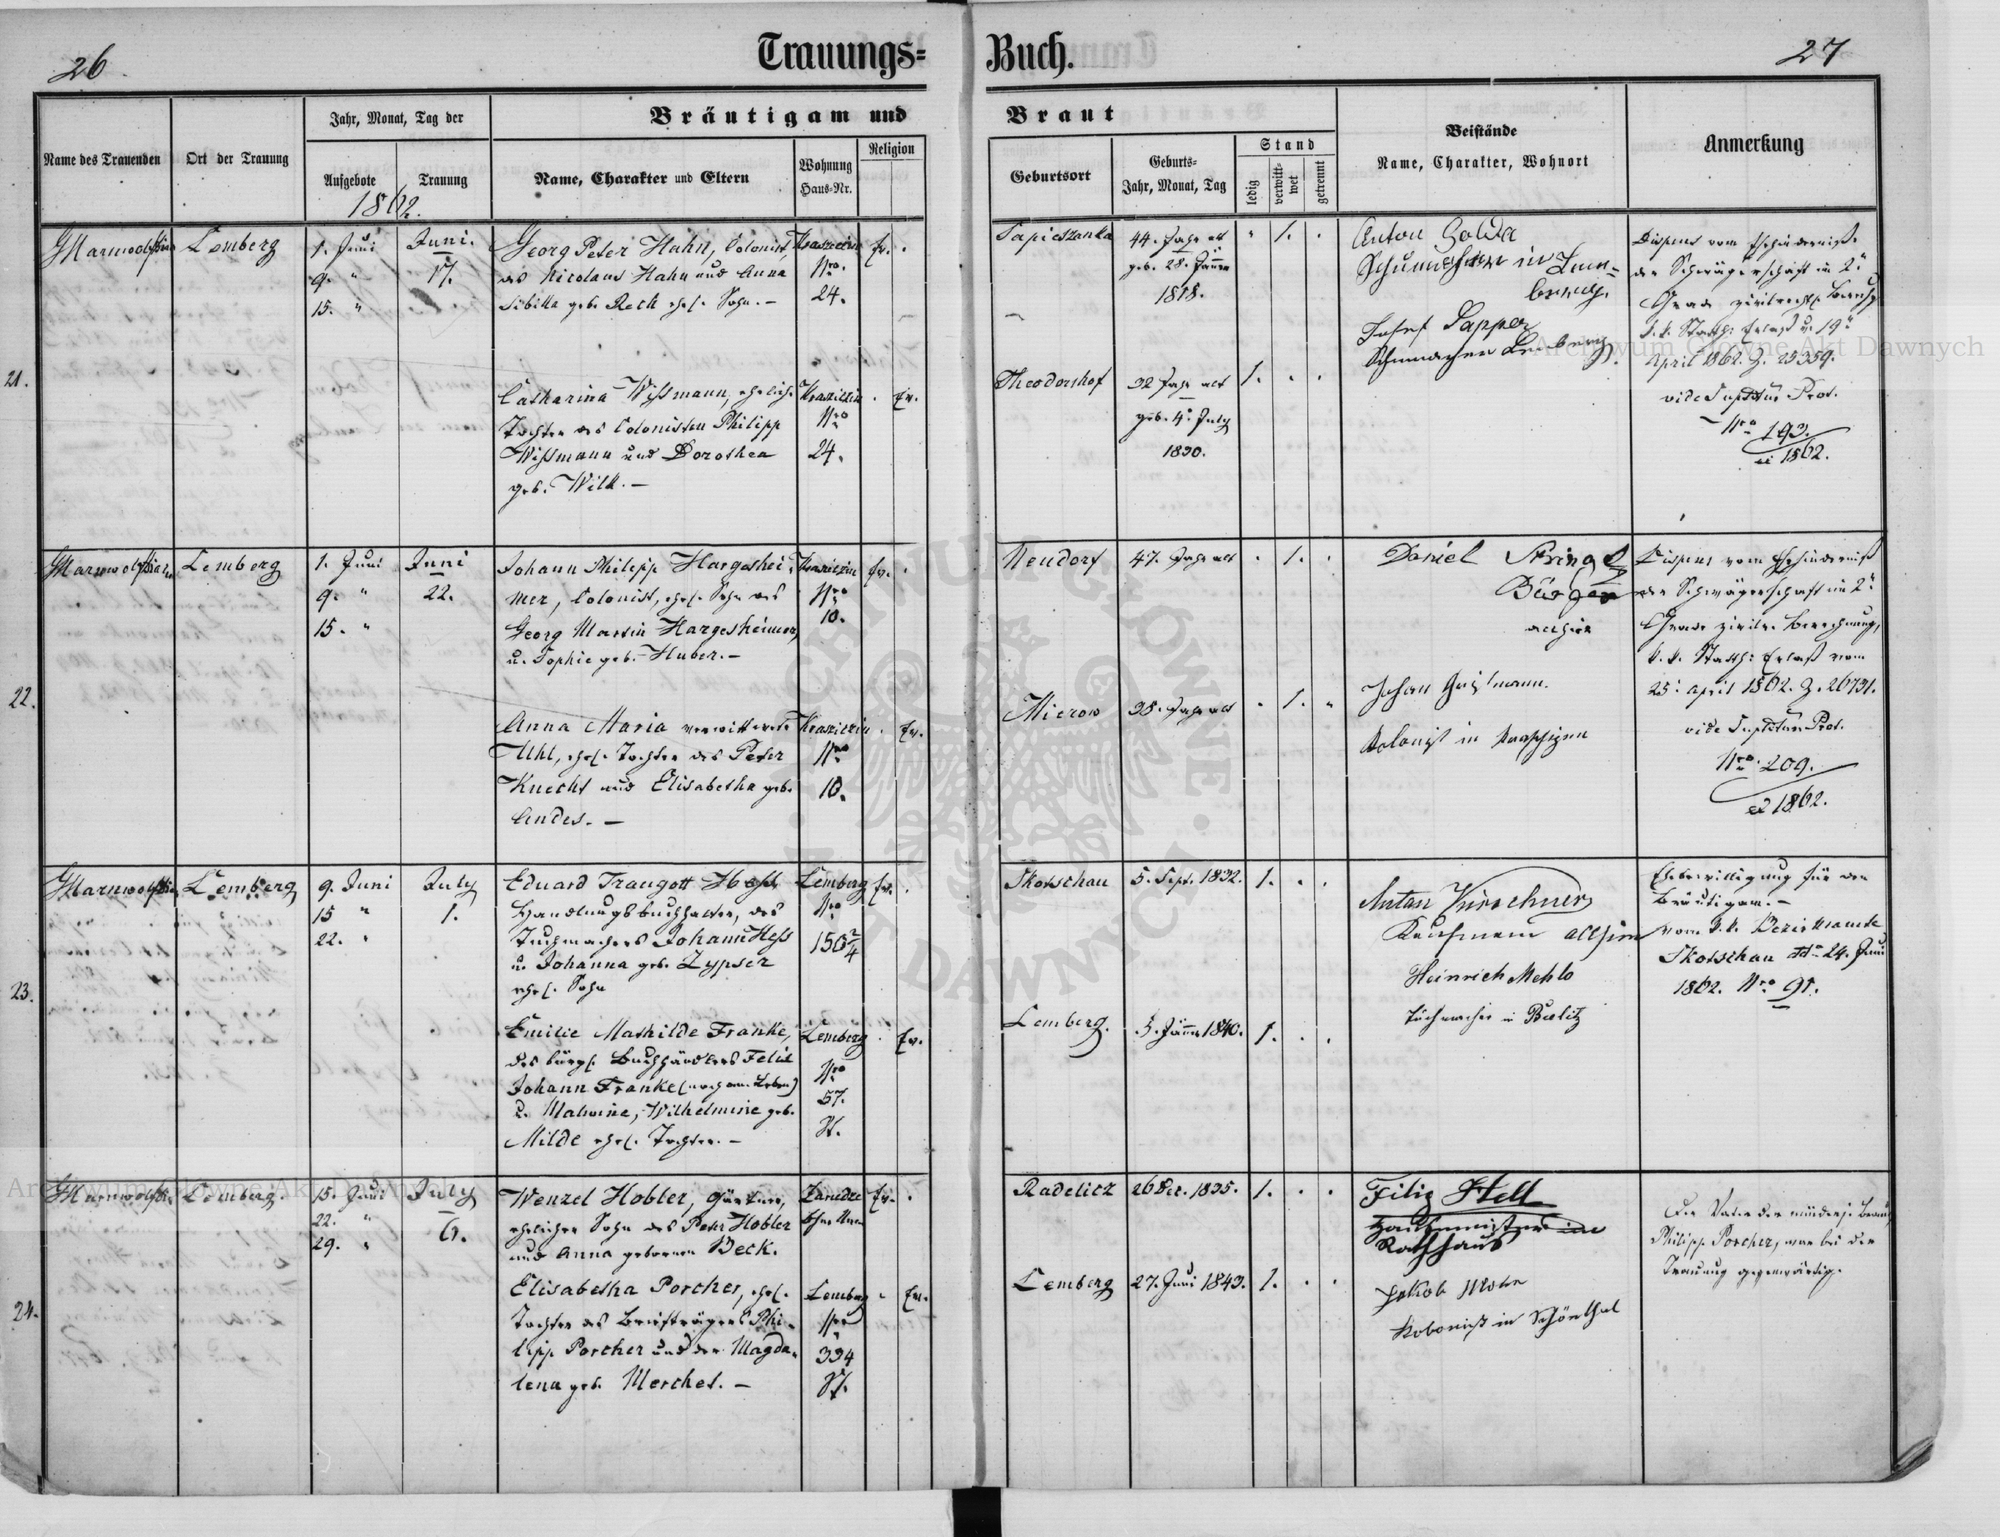 26
Trauungs=
Buch.
27
Name des Trauenden
Ort der Trauung
Jahr, Monat, Tag der
Aufgebote
Trauung
1862.
Bräutigam und
Braut
Name, Charakter und Eltern
Wohnung
Haus-Nr.
Religion
Geburtsort
Geburts-
Jahr, Monat, Tag
Stand
ledig
verwitt-
wet
getrennt
Beistände
Name, Charakter, Wohnort
Anmerkung
21.
Lemberg
1. Juni
9. "
15. "
Juni.
17.
Georg Peter Hahn, Colonist,
des Nicolaus Hahn und Anna
Sibilla geb. Rech ehel. Sohn. —
Nro.
24.
Ev.
Catharina Wißmann, eheliche
Tochter des Colonisten Philipp
Wißmann und Dorothea
geb. Wilk. —
Nro
24.
Ev.
Sapieszanka
44. Jahr alt
geb. 28. Jänner
1818.
1.
Theodorshof
32 Jahr alt
geb. 4. July
1830.
1.
Anton
Josef
Lemberg.
Dispens vom Ehehinderniß
der Schwägerschaft im 2n
Grad
k. k. Statth: Erlaß v. 19n
April 1862. Z. 25359.
vide Suptdtur Prot.
Nro 193.
ex 1862.
22.
Lemberg
1. Juni
9. "
15. "
Juni
22.
Johann Philipp Hargeshei-
mer, Colonist, ehel. Sohn des
Georg Martin Hargesheimer,
u. Sophie geb. Huber. —
Nro
10.
Ev.
Anna Maria verwittwete
Uhl, ehel. Tochter des Peter
Knecht und Elisabetha geb.
Andes. —
Nro
10.
Ev.
Neudorf
47. Jahr alt
1.
Mierow
38. Jahr alt
1.
Daniel
Bürger
allhier
Johan
Kolonist in
Dispens vom Ehehinderniß
der Schwägerschaft im 2n
Grade zivilr. Berechnung,
k. k. Statth: Erlaß vom
25. April 1862. Z. 26731.
vide Suptdtur Prot.
Nro. 209.
ex 1862.
23.
Lemberg
9. Juni
15 "
22. "
July
1.
Eduard Traugott Heß
Handlungsbuchhalter, des
Tuchmachers Johann Heß
u. Johanna geb. Zypser
ehel. Sohn
Lemberg
Nro
150 2/4
Ev.
Emilie Mathilde Franke,
des bürgl. Buchhändlers Felix
Johann Franke (noch am Leben)
u. Malwine, Wilhelmine geb.
Milde ehel. Tochter. —
Lemberg
Nro
57.
St.
Ev.
Skotschau
5. Sept. 1832.
1.
Lemberg.
5. Jänner 1840.
1.
Anton Kirschner
Kaufmann allhier
Heinrich Mehlo
Tuchmacher in Bielitz
Ehebewilligung für den
Bräutigam. —
vom k. k. Bezirksamte
Skotschau dto 24. Juni
1862. Nro 91.
24.
Lemberg.
15. Juni
22. "
29. "
July
6.
Wenzel Hobler, Gärtner,
ehelicher Sohn des Peter Hobler
und Anna gebornen Beck.
Ev.
Elisabetha Porcher, ehel.
Tochter des Briefträgers Phi-
lipp Porcher und der Magda-
lena geb. Merchet. —
Lemberg
Nro
394
Ev.
Radelicz
26 Dec. 1835.
1.
Lemberg
27. Juni 1843.
1.
Filip Hell
Rathhaus
Jakob Mohr
Kolonist in Schönthal
Der Vater der minderj. Braut
Philipp Porcher, war bei der
Trauung gegenwärtig.
Archiwum Główne Akt Dawnych
Archiwum Główne Akt Dawnych
ARCHIWUM GŁÓWNE AKT DAWNYCH